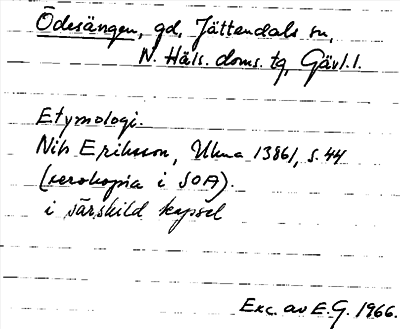 Ödesängen, gd, Jättendals sn,
N. Häls. doms. tg, Gävl. l.
Etymologi.
Nils Eriksson, Uluna 1386/, s. 44
(xerokopia i SOA).
i särskild kapsel
Exc. av E.G. 1966.